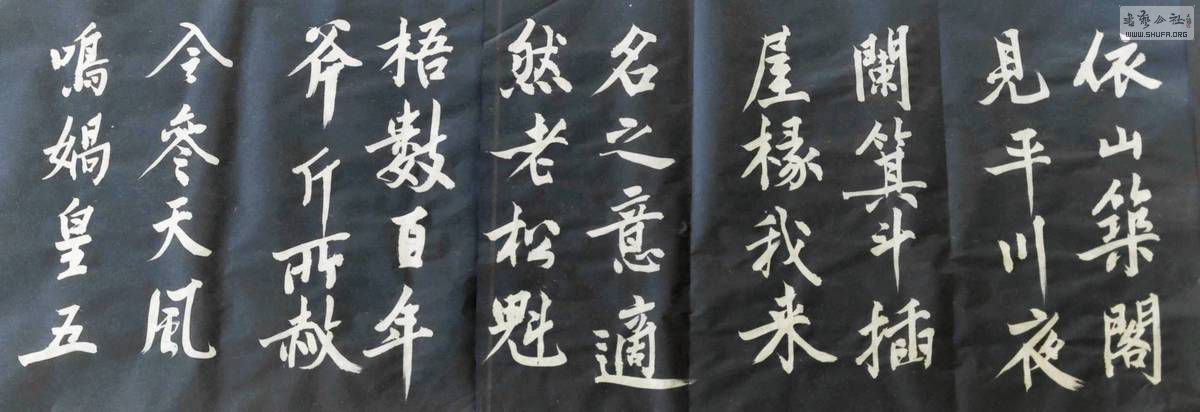 依山築閣
見平川夜
闌箕斗插
屋椽我来
名之意適
然老松魁
梧數百年
斧斤所赦
令參天風
鳴媧皇五
書藝公社
WWW.SHUFA.ORG